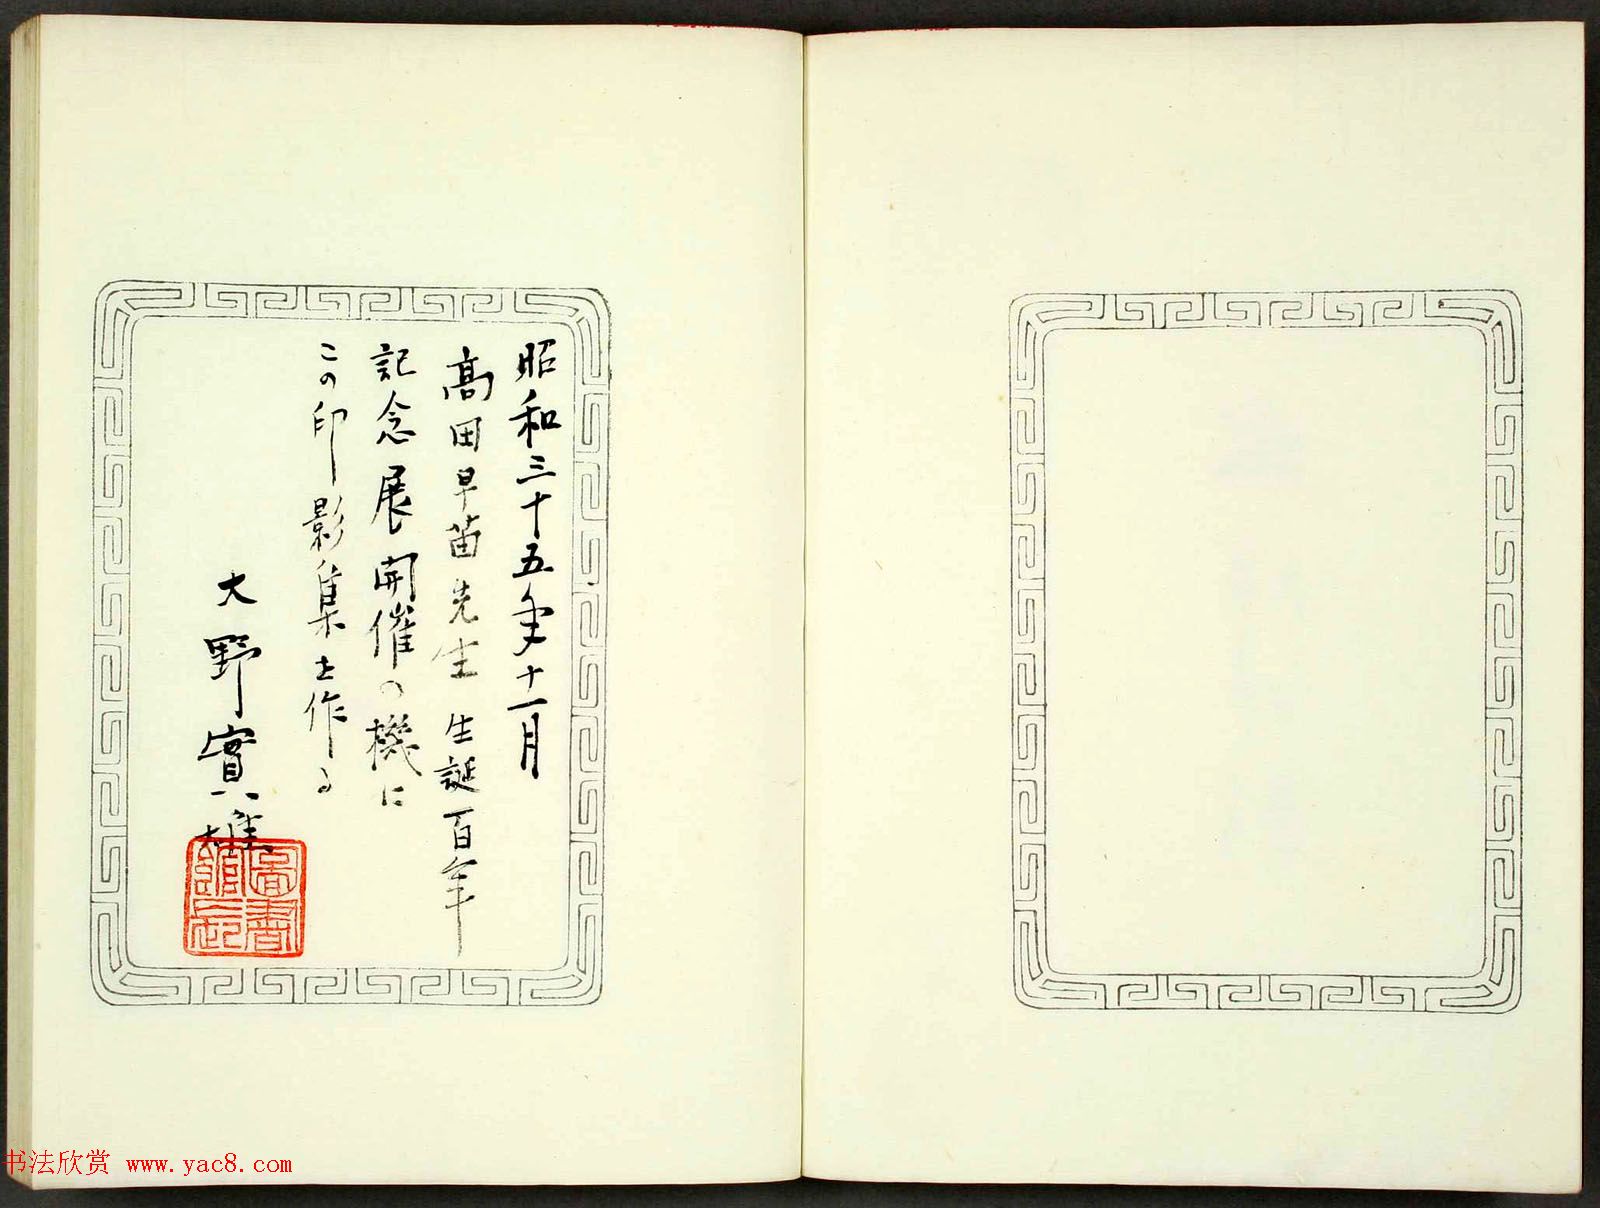 昭和三十五年十一月
高田早苗先生 生誕百年
記念展開催の機に
この印影集を作る
大野實雄
圖書
館長
书法欣赏 www.yac8.com